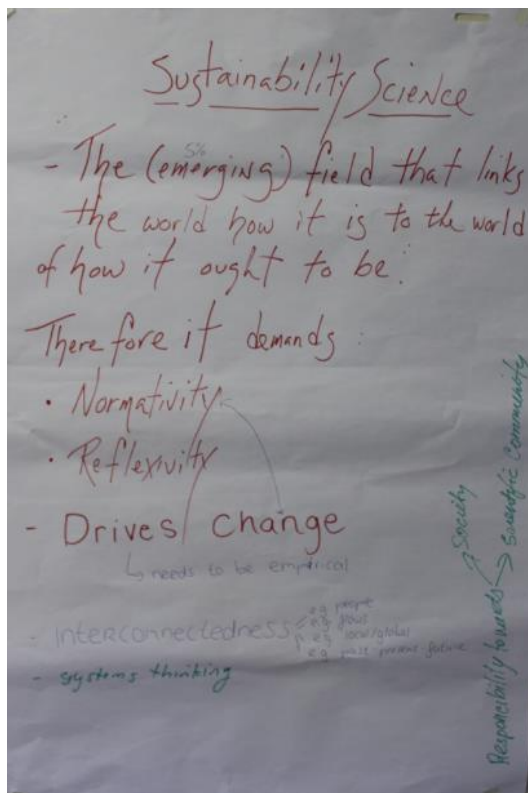 Sustainability Science
- The (emerging) field that links
5%
the world how it is to the world
of how it ought to be.
Therefore it demands :
• Normativity
• Reflexivity
- Drives change
↳ needs to be empirical
- interconnectedness
e.g. people
e.g.
e.g. local/global
e.g. past present future
- systems thinking
Responsibility towards
Society
Scientific Community